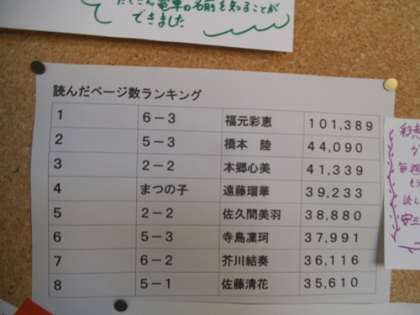 たくさん電車の名前を知ることが
できました
読んだページ数ランキング
1 6－3 福元彩恵 101,389
2 5－3 橋本　陸 44,090
3 2－2 本郷心美 41,339
4 まつの子 遠藤瑠華 39,233
5 2－2 佐久間美羽 38,880
6 5－3 寺島凜珂 37,991
7 6－2 芥川結奏 36,116
8 5－1 佐藤清花 35,610